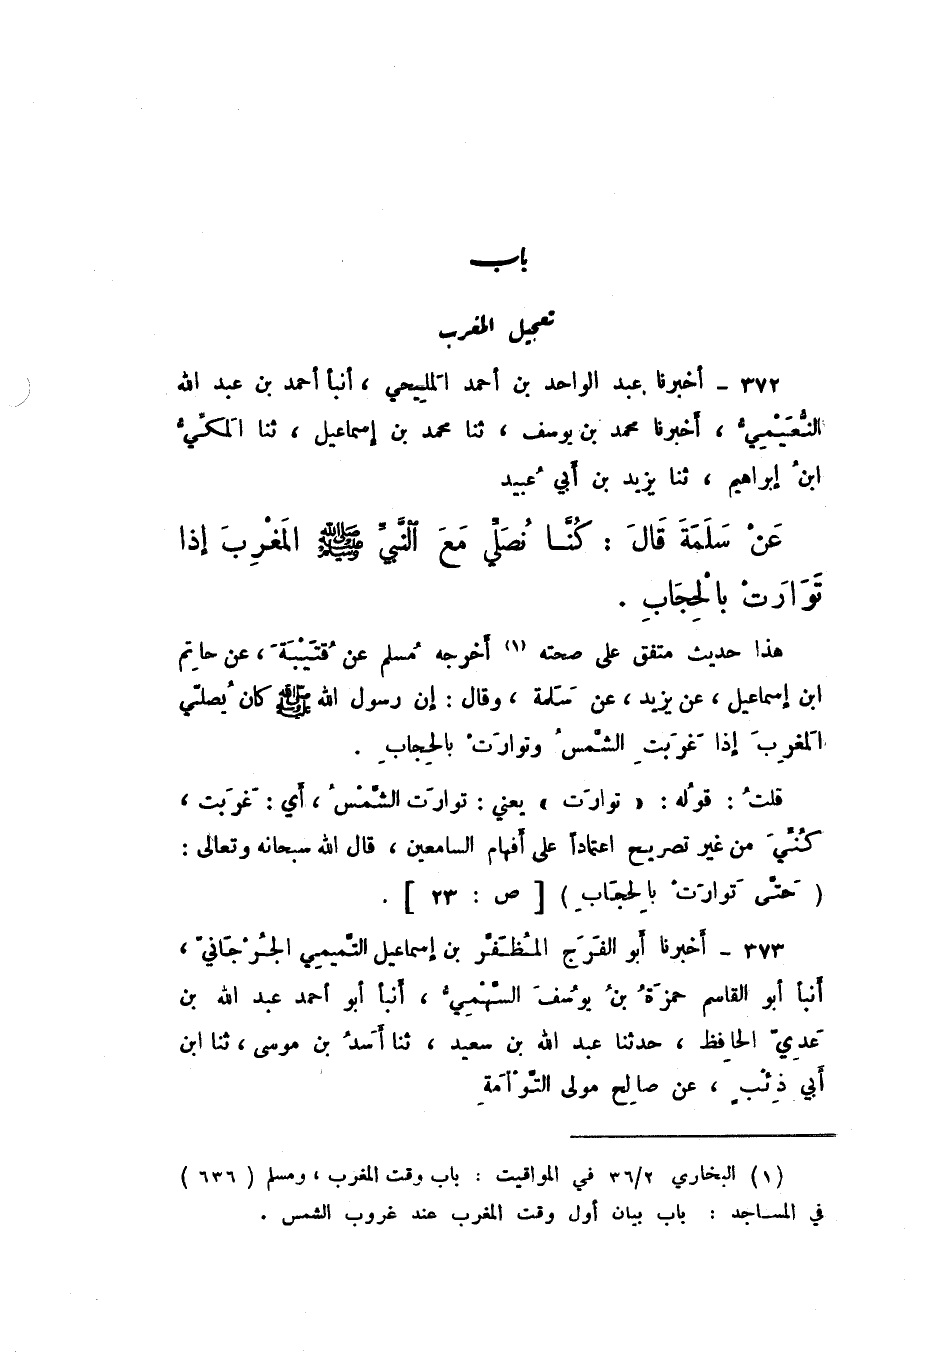 باب
تعجيل المغرب
٣٧٢ - أخبرنا عبد الواحد بن أحمد المليحي ، أنبأ أحمد بن عبد الله
النُّعَيْمِيُّ ، أخبرنا محمد بن يوسف ، ثنا محمد بن إسماعيل ، ثنا المكّيُّ
ابنُ إبراهيم ، ثنا يزيد بن أبي عُبيد
عَنْ سَلَمَةَ قَالَ : كُنَّا نُصَلِّي مَعَ ٱلنَّبِيِّ ﷺ المَغْرِبَ إذا
تَوَارَتْ بالْحِجَابِ .
هذا حديث متفق على صحته (١) أخرجه مُسلم عن قُتَيْبَةَ ، عن حاتِم
ابن إسماعيل ، عن يزيد ، عن سَلمة ، وقال : إن رسول الله ﷺ كان يُصلّي
المغرِبَ إذا غَرَبتِ الشَّمسُ وتوارَتْ بالحِجابِ .
قلتُ : قولُه : « توارَت » يعني : توارَت الشَّمْسُ ، أي : غَرَبت ،
كُنِّيَ من غير تصريح اعتماداً على أفهام السامعين ، قال الله سبحانه وتعالى :
( حَتَّى تَوارَتْ بالِحجَابِ ) [ ص : ٢٣ ] .
٣٧٣ - أخبرنا أبو الفَرَج المُظَفَّر بن إسماعيل التَّميمي الجُرْجَانيّ ،
أنبأ أبو القاسم حمزَةُ بنُ يوُسُفَ السَّهْمِيُّ ، أنبأ أبو أحمد عبد الله بن
عَدِيّ الحافِظ ، حدثنا عبد الله بن سعيد ، ثنا أسَدُ بن موسى ، ثنا ابن
أبي ذِئْبٍ ، عن صالِح مولى التَّوْأمَةِ
(١) البخاري ٣٦/٢ في المواقيت : باب وقت المغرب ، ومسلم ( ٦٣٦ )
في المساجد : باب بيان أول وقت المغرب عند غروب الشمس .